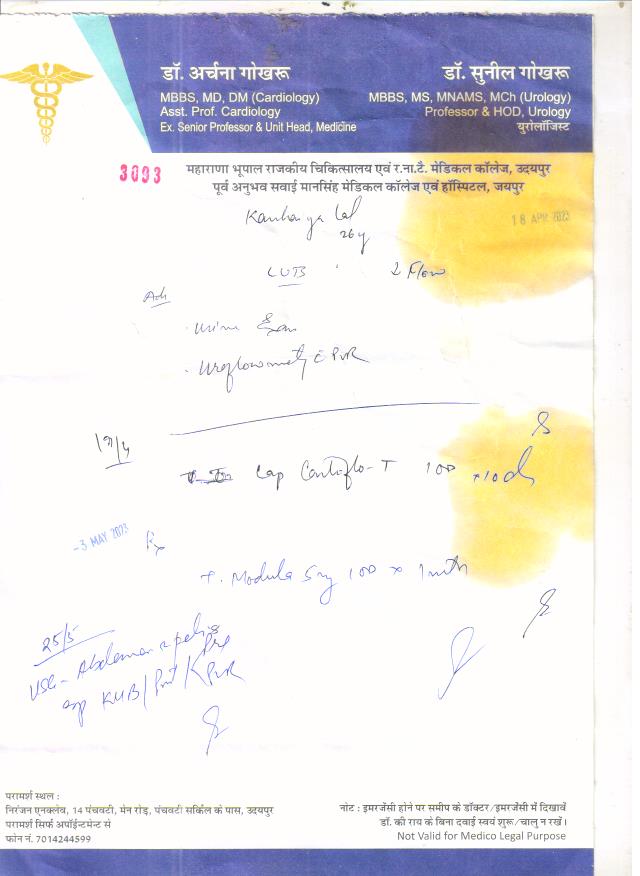 डॉ. अर्चना गोखरू
MBBS, MD, DM (Cardiology)
Asst. Prof. Cardiology
Ex. Senior Professor & Unit Head, Medicine
डॉ. सुनील गोखरू
MBBS, MS, MNAMS, MCh (Urology)
Professor & HOD, Urology
युरोलॉजिस्ट
3093
महाराणा भूपाल राजकीय चिकित्सालय एवं र.ना.टै. मेडिकल कॉलेज, उदयपुर
पूर्व अनुभव सवाई मानसिंह मेडिकल कॉलेज एवं हॉस्पिटल, जयपुर
Kanhaiya Lal
18 APR 2023
26y
LUTS
Flow
Adv
Urine Exam
Uroflowmetry c PVR
19/4
Cap Contiflo-T
-3 MAY 2023
Rx
T. Modula 5mg x 1 mth
25/5
USG - Abdomen pelvis
KUB/ PVR
परामर्श स्थल :
निरंजन एनक्लेव, 14 पंचवटी, मेन रोड़, पंचवटी सर्किल के पास, उदयपुर
परामर्श सिर्फ अपॉईन्टमेन्ट से
फोन नं. 7014244599
नोट : इमरजेंसी होने पर समीप के डॉक्टर/इमरजेंसी में दिखावें
डॉ. की राय के बिना दवाई स्वयं शुरू/चालु न रखें।
Not Valid for Medico Legal Purpose